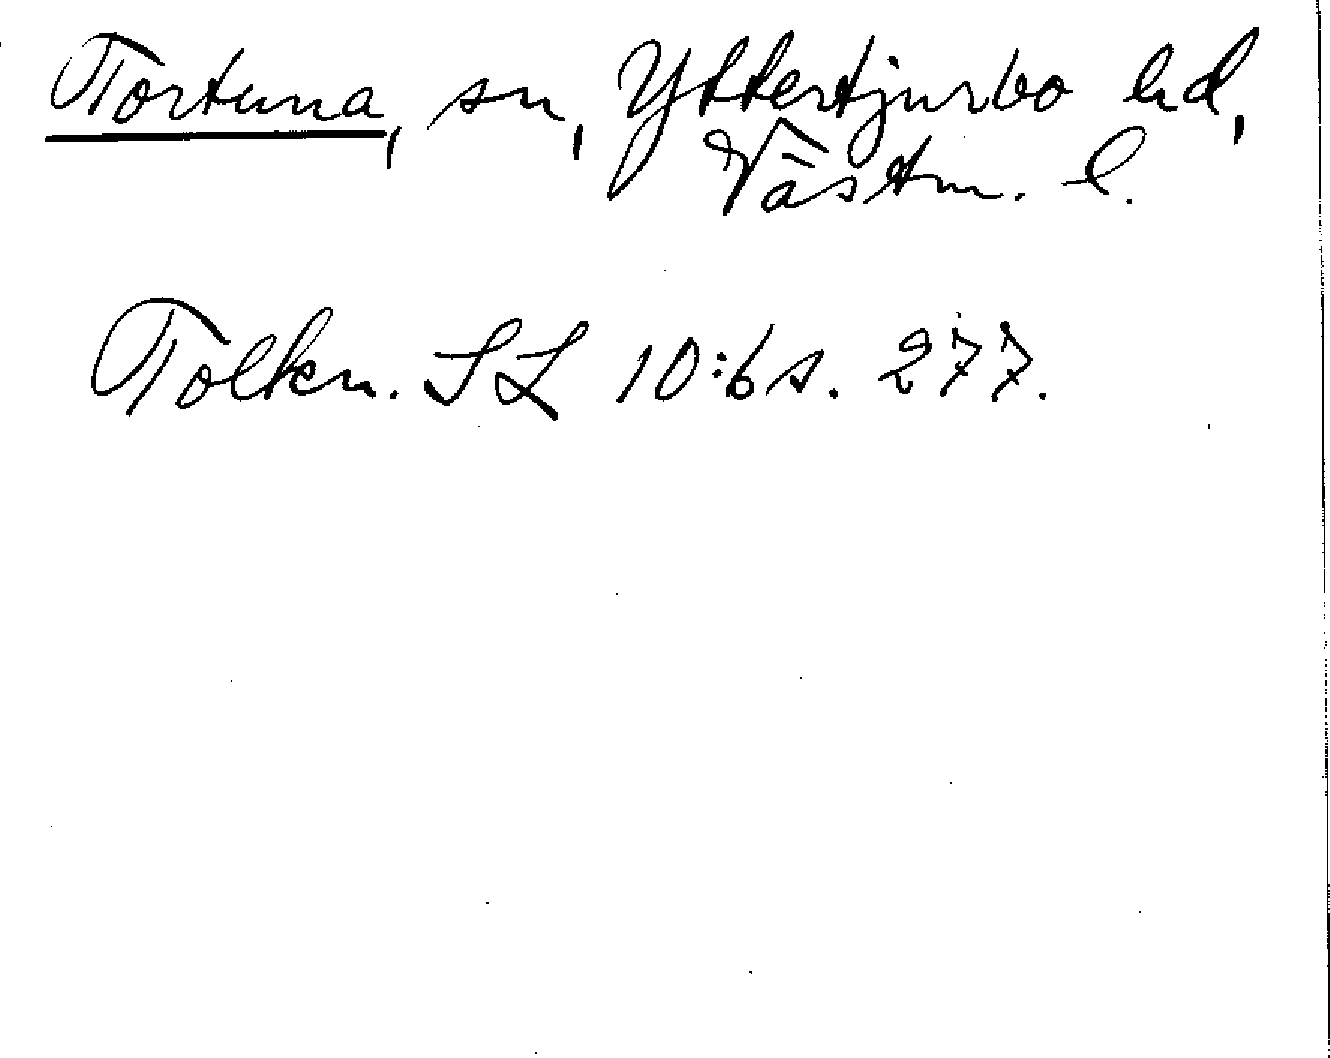 Tortuna, sn, Yttertjurbo hd,
Västm. l.
Tolkn. SL 10:6 s. 277.